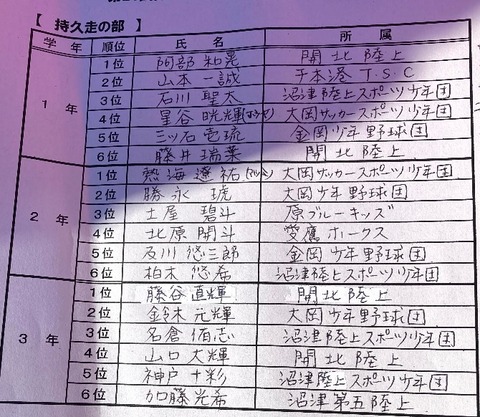 【 持久走の部 】
学 年 順位 氏 名 所 属
1 年
1位 阿部 和晃 開北陸上
2位 山本 一誠 千本港 T.S.C
3位 石川 聖太 沼津陸上スポーツ少年団
4位 星谷 晄輝 大岡サッカースポーツ少年団
5位 三ッ石 壱琉 金岡少年野球団
6位 藤井 瑞葉 開北陸上
2 年
1位 熱海 遼祐 大岡サッカースポーツ少年団
2位 勝永 琥 大岡少年野球団
3位 土屋 碧斗 原ブルーキッズ
4位 北原 開斗 愛鷹ホークス
5位 及川 悠三郎 金岡少年野球団
6位 柏木 悠希 沼津陸上スポーツ少年団
3 年
1位 藤谷 直輝 開北陸上
2位 鈴木 元輝 大岡少年野球団
3位 名倉 侑志 沼津陸上スポーツ少年団
4位 山口 大輝 開北陸上
5位 神戸 十彩 沼津陸上スポーツ少年団
6位 加藤 光希 沼津第五陸上